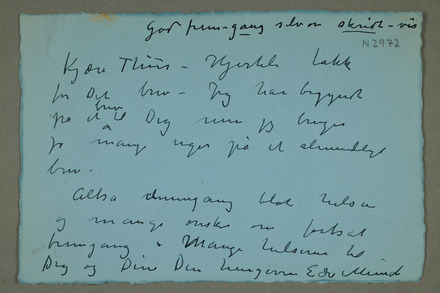 God frem-gang selv om skridt-vis
N2972
Kjære Thiis – Hjertelig takk
for Dit brev – Jeg har begyndt
på et brev til Dig men jeg bruger
jo mange uger på et almindeligt
brev –
Altså denne gang blot hilsen
og mange ønsker om fortsat
fremgang – Mange hilsener til
Dig og Dine Din hengivne Edv Munch